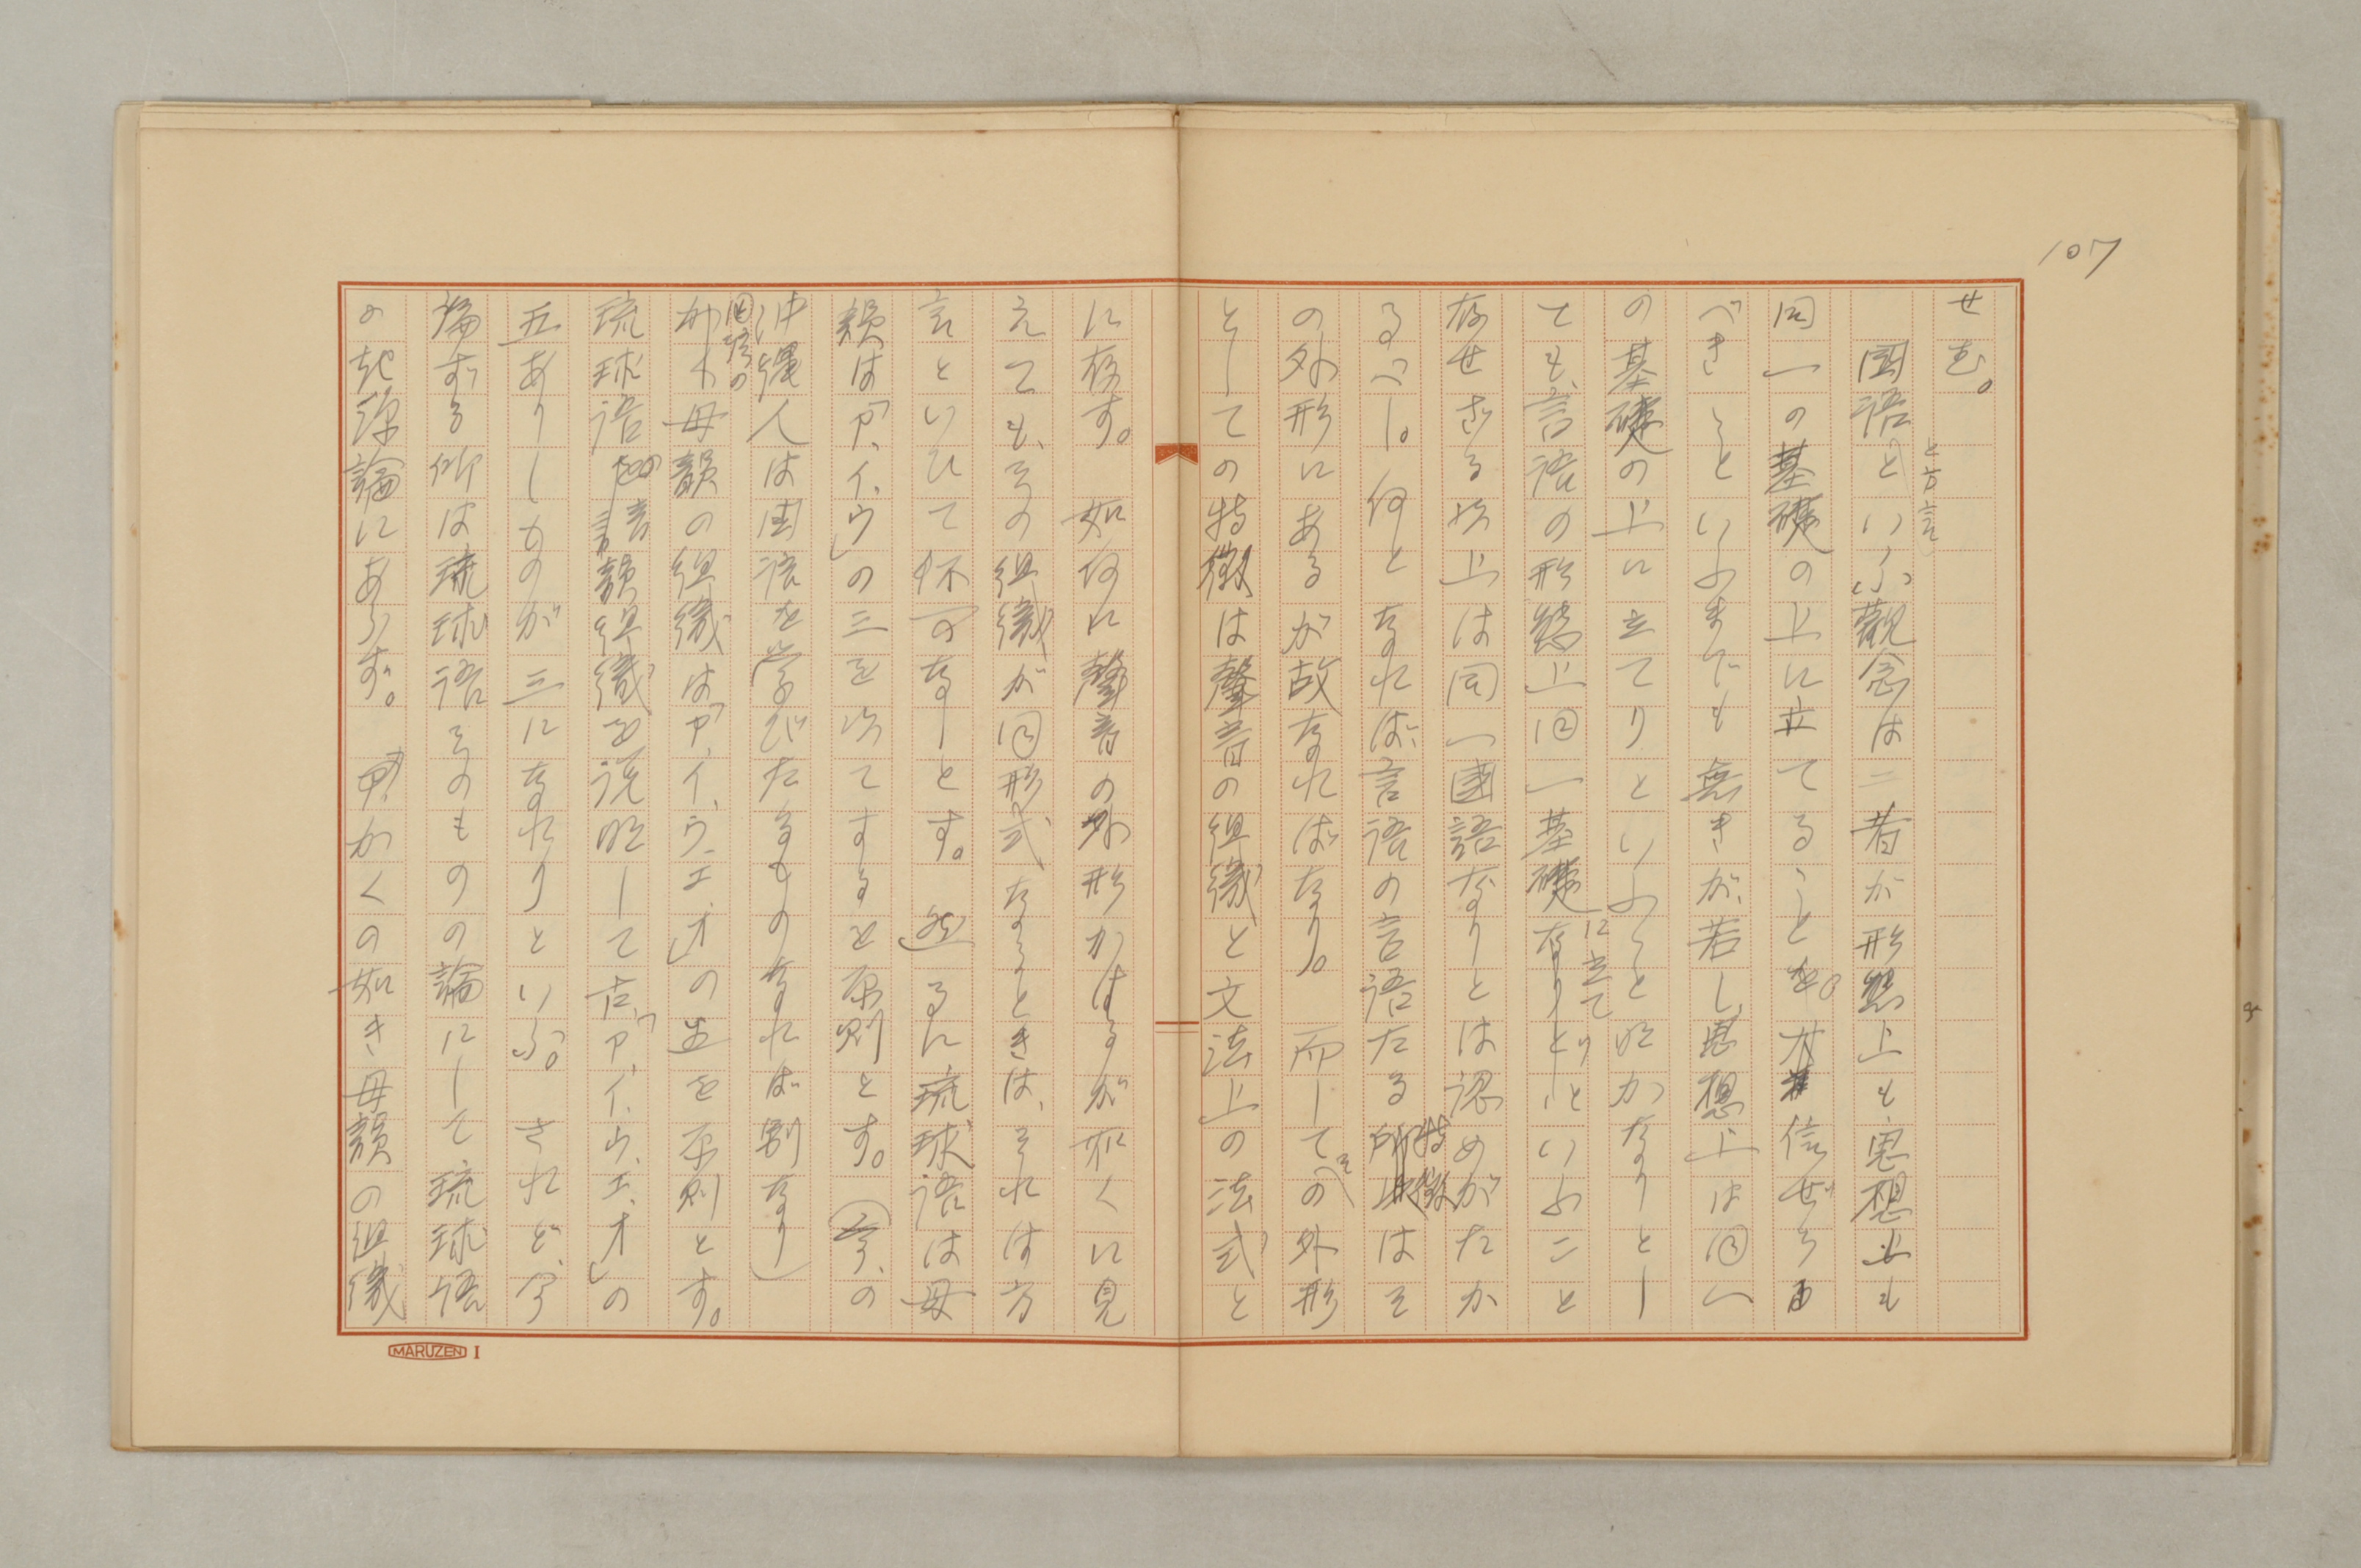 107
せむ。
國語と方言といふ觀念は二者が形態上も思想上も
同一の基礎の上に立てることを信ぜらる
べきことといふまでも無きが、若し思想上は同一
の基礎の上に立てりといふこと明かなりとし
ても、言語の形態上同一基礎に立てりといふこと
存せざる以上は同一國語なりとは認めがたか
るべし。何となれば、言語の言語たる特徴はそ
の外形にあるが故なればなり。而してその外形
としての特徴は聲音の組織と文法上の法式と
に存す。如何に聲音の外形かはるが如くに見
えても、その組織が同形式なるときは、それは方
言といひて不可なしとす。然るに琉球語は母
韻は「ア、イ、ウ」の三を以てするを原則とす。(今の
沖縄人は国語を学びたるものなれば別なり)
国語の母韻の組織は「ア、イ、ウ、エ、オ」の五を原則とす。
琉球語の母韻組織を説明して古「ア、イ、ウ、エ、オ」の
五ありしものが三になれりといふ。されど、今
論ずる所は琉球語そのものの論にして琉球語
の起源論にあらず。かくの如き母韻の組織
MARUZEN I